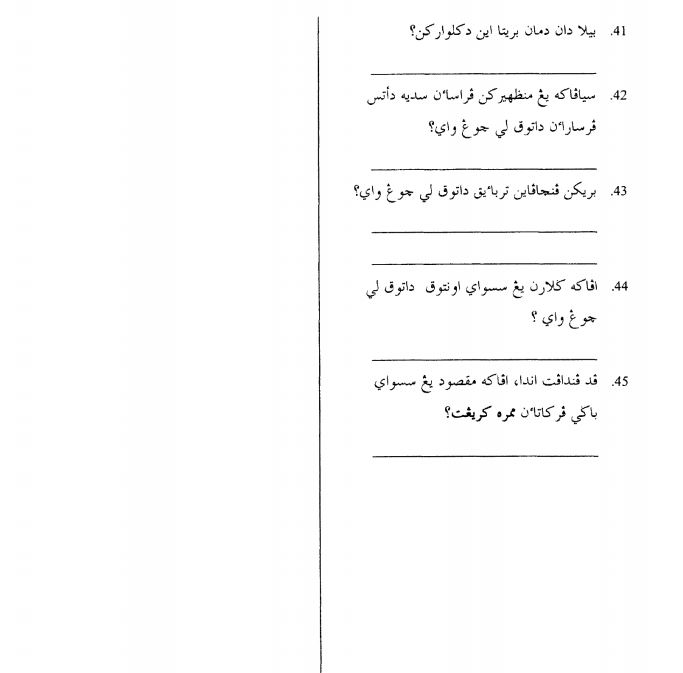 41. بيلا دان دمان بريتا اين دكلواركن؟
42. سياڤاكه يڠ منظهيركن ڤراساٴن سديه دأتس
ڤرساراٴن داتوق لي چوڠ واي؟
43. بريكن ڤنچاڤاين ترباٴيق داتوق لي چوڠ واي؟
44. اڤاكه ݢلارن يڠ سسواي اونتوق داتوق لي
چوڠ واي ؟
45. ڤد ڤنداڤت اندا، اڤاكه مقصود يڠ سسواي
باݢي ڤركاتاٴن ممره كريڠت؟